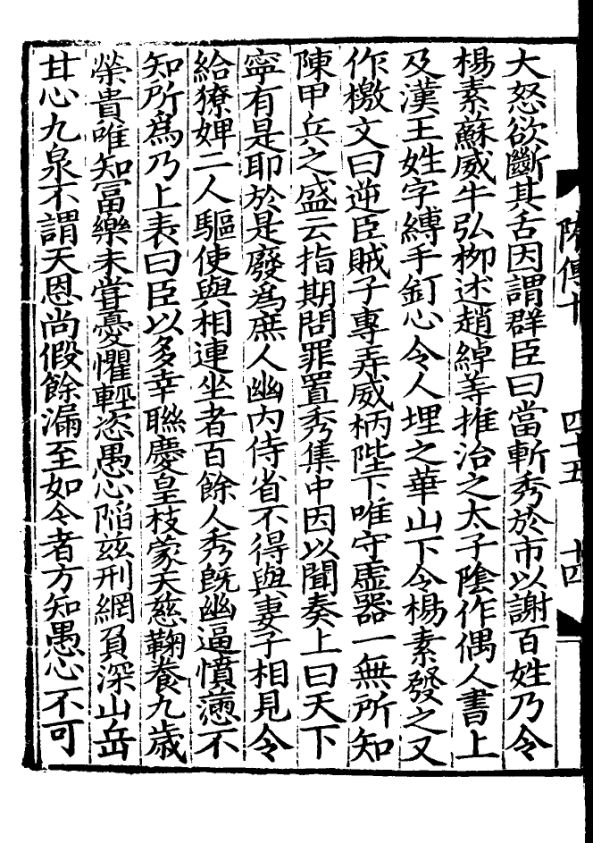 隋傳十 四十五 十四
大怒欲斷其舌因謂群臣曰當斬秀於市以謝百姓乃令
楊素蘇威牛弘柳述趙綽等推治之太子陰作偶人書上
及漢王姓字縛手釘心令人埋之華山下令楊素發之又
作檄文曰逆臣賊子專弄威柄陛下唯守虛器一無所知
陳甲兵之盛云指期問罪置秀集中因以聞奏上曰天下
寧有是耶於是廢爲庶人幽内侍省不得與妻子相見令
給獠婢二人驅使與相連坐者百餘人秀旣幽逼憤懣不
知所爲乃上表曰臣以多幸聯慶皇枝蒙天慈鞠養九歲
榮貴唯知富樂未甞憂懼輕恣愚心陷兹刑網負深山岳
甘心九泉不謂天恩尚假餘漏至如今者方知愚心不可